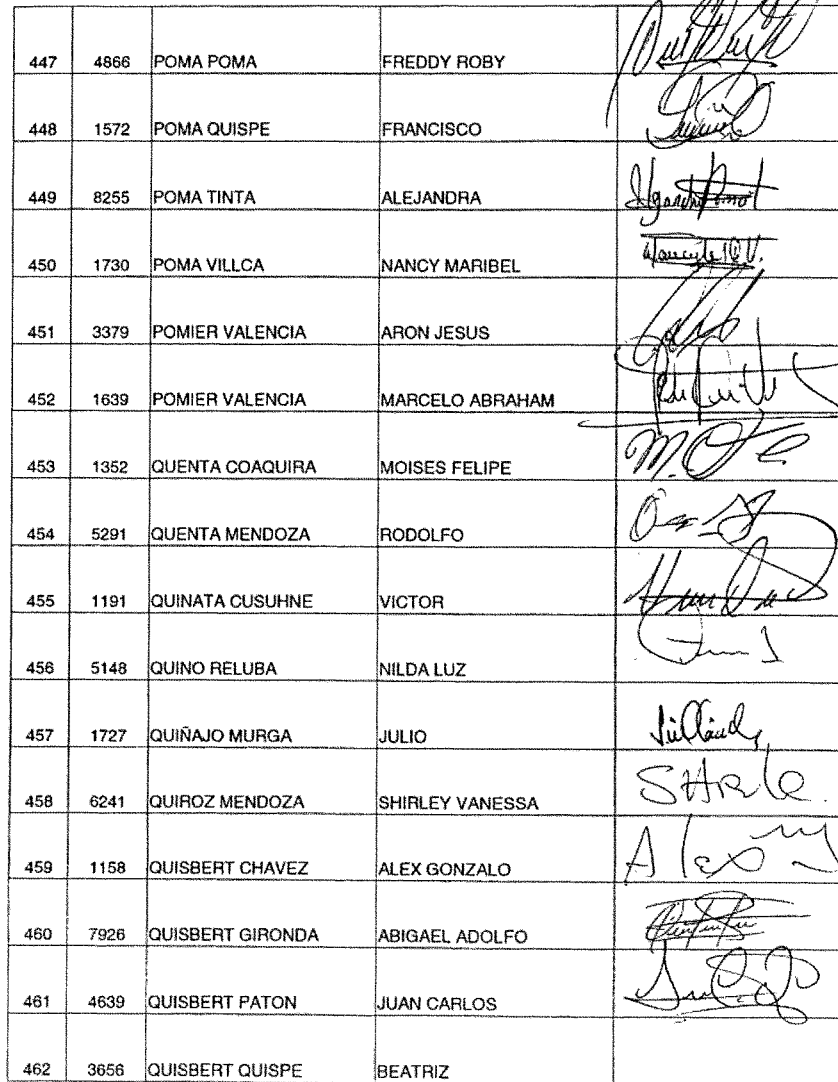 447 4866 POMA POMA FREDDY ROBY
448 1572 POMA QUISPE FRANCISCO
449 8255 POMA TINTA ALEJANDRA
450 1730 POMA VILLCA NANCY MARIBEL
451 3379 POMIER VALENCIA ARON JESUS
452 1639 POMIER VALENCIA MARCELO ABRAHAM
453 1352 QUENTA COAQUIRA MOISES FELIPE
454 5291 QUENTA MENDOZA RODOLFO
455 1191 QUINATA CUSUHNE VICTOR
456 5148 QUINO RELUBA NILDA LUZ
457 1727 QUIÑAJO MURGA JULIO
458 6241 QUIROZ MENDOZA SHIRLEY VANESSA
459 1158 QUISBERT CHAVEZ ALEX GONZALO Alex
460 7926 QUISBERT GIRONDA ABIGAEL ADOLFO
461 4639 QUISBERT PATON JUAN CARLOS
462 3656 QUISBERT QUISPE BEATRIZ